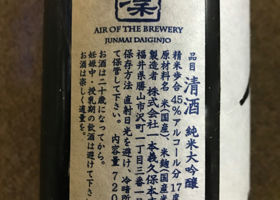 AIR OF THE BREWERY
JUNMAI DAIGINJO
品目 清酒 純米大吟醸
精米歩合 45% アルコール分 17度
原材料名 米(国産)、米麹(国産米)
製造者 株式会社 一本義久保本店
福井県勝山市沢町一丁目三番一号
保存方法 直射日光を避け、冷暗所に
て保管して下さい。 内容量 720
お酒は二十歳になってから。
妊娠中・授乳期の飲酒は避けて下さ
お酒は楽しく適量を。